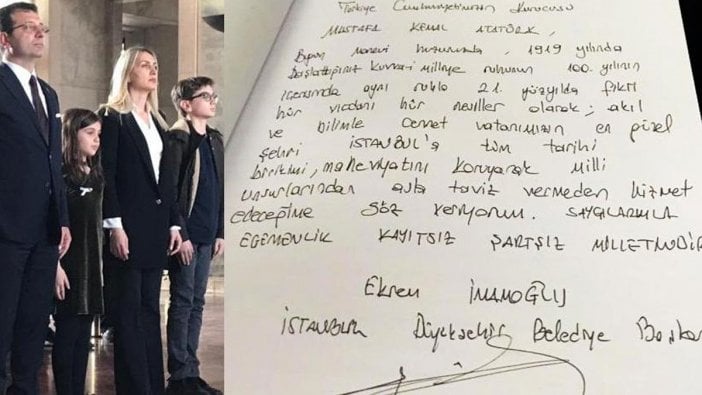 Türkiye Cumhuriyetinin Kurucusu
MUSTAFA KEMAL ATATÜRK,
Bugün Manevi huzurunda, 1919 yılında
Başlattığınız Kuvvayi Milliye ruhunun 100. yılının
içerisinde aynı ruhla 21. yüzyılda fikri
hür vicdanı hür nesiller olarak; akıl
ve bilimle Cennet vatanımızın en güzel
şehri İSTANBUL'a tüm tarihi
birikimi, maneviyatını koruyarak Milli
unsurlarından asla taviz vermeden hizmet
edeceğime söz veriyorum. SAYGILARIMLA
EGEMENLİK KAYITSIZ ŞARTSIZ MİLLETİNDİR
Ekrem İMAMOĞLU
İSTANBUL Büyükşehir Belediye Başkan